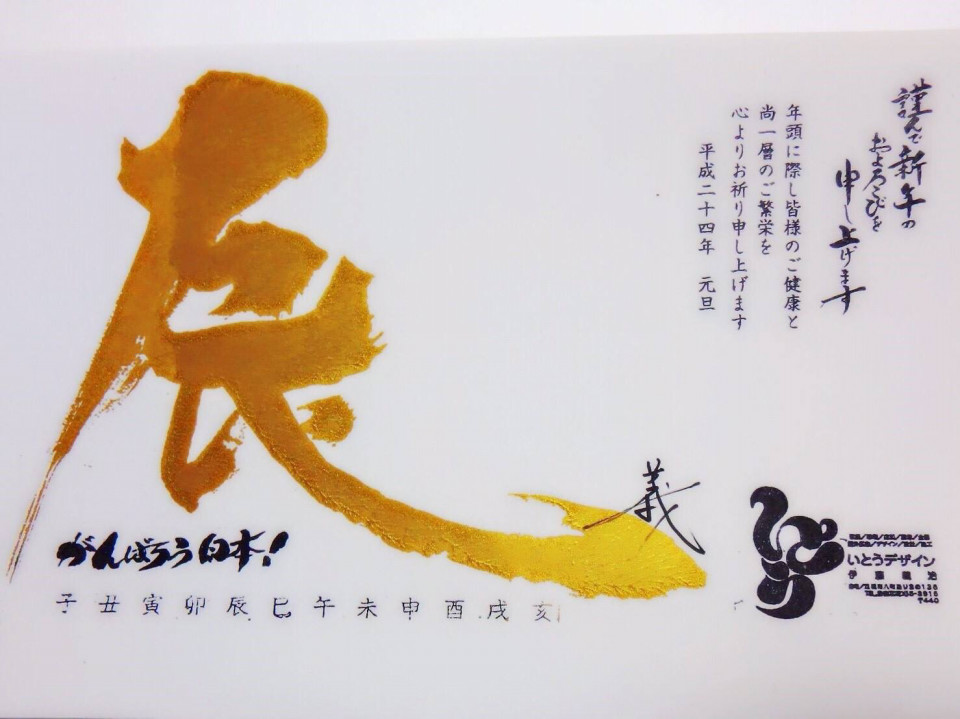 謹んで新年の
およろこびを
申し上げます
年頭に際し皆様のご健康と
尚一層のご繁栄を
心よりお祈り申し上げます
平成二十四年 元旦
辰
義
がんばろう日本!
子 丑 寅 卯 辰 巳 午 未 申 酉 戌 亥
いとうデザイン
〒440